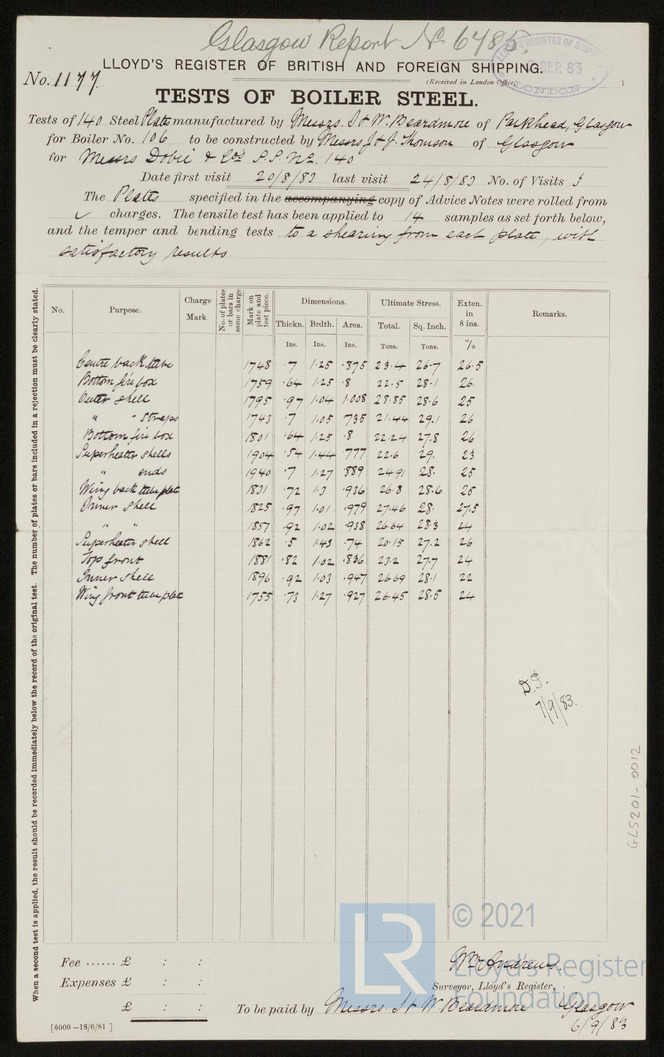 Glasgow Report No 6785.
LLOYD'S REGISTER OF BRITISH AND FOREIGN SHIPPING.
No. 1177.
(Received in London Office
SEP. 83
LONDON
TESTS OF BOILER STEEL.
Tests of 140 Steel Plates manufactured by Messrs. J & W. Beardmore of Parkhead, Glasgow
for Boiler No. 106 to be constructed by Messrs J & J. Thomson of Glasgow
for Messrs Dobie & Co's S.S. No. 140
Date first visit 20/8/83 last visit 24/8/83 No. of Visits 3
The Plates specified in the accompanying copy of Advice Notes were rolled from
charges. The tensile test has been applied to 14 samples as set forth below,
and the temper and bending tests to a shearing from each plate, with
satisfactory results
No. Purpose. Charge Mark. No. of plates or bars in same charge Mark on plate and test piece. Dimensions. Ultimate Stress. Exten. in 8 ins. Remarks.
Thickn. Brdth. Area. Total. Sq. Inch.
Ins. Ins. Ins. Tons. Tons. %
Centre back tube 1748 .7 1.25 .875 23.4 26.7 26.5
Bottom fire box 1759 .64 1.25 .8 22.5 28.1 26.
Outer shell 1795 .97 1.04 1.008 28.85 28.6 25
" " Straps 1743 .7 1.05 .735 21.44 29.1 26
Bottom fire box 1801 .64 1.25 .8 22.24 27.8 26
Superheater shells 1904 .54 1.44 .777 22.6 29. 23
" ends 1940 .7 1.27 .889 24.91 28. 25
Wing back tube plate 1831 .72 1.3 .936 26.8 28.6 25
Inner shell 1825 .97 1.01 .979 27.46 28. 27.5
" " 1857 .92 1.02 .938 26.64 28.3 24
Superheater shell 1862 .5 1.43 .74 20.15 27.2 26
Top front 1881 .82 1.02 .836 23.2 27.7 24
Inner shell 1896 .92 1.03 .947 26.69 28.1 22
Wing front tube plate 1755 .73 1.27 .927 26.45 28.5 24
7/9/83.
GLS201-0012
When a second test is applied, the result should be recorded immediately below the record of the original test. The number of plates or bars included in a rejection must be clearly stated.
Fee ...... £ : :
Expenses £ : :
£ : :
Wm Andrews.
Surveyor, Lloyd's Register,
To be paid by Messrs J & W Beardmore Glasgow
6/9/83
[6000—18/6/81]
LR
© 2021
Lloyd's Register
Foundation